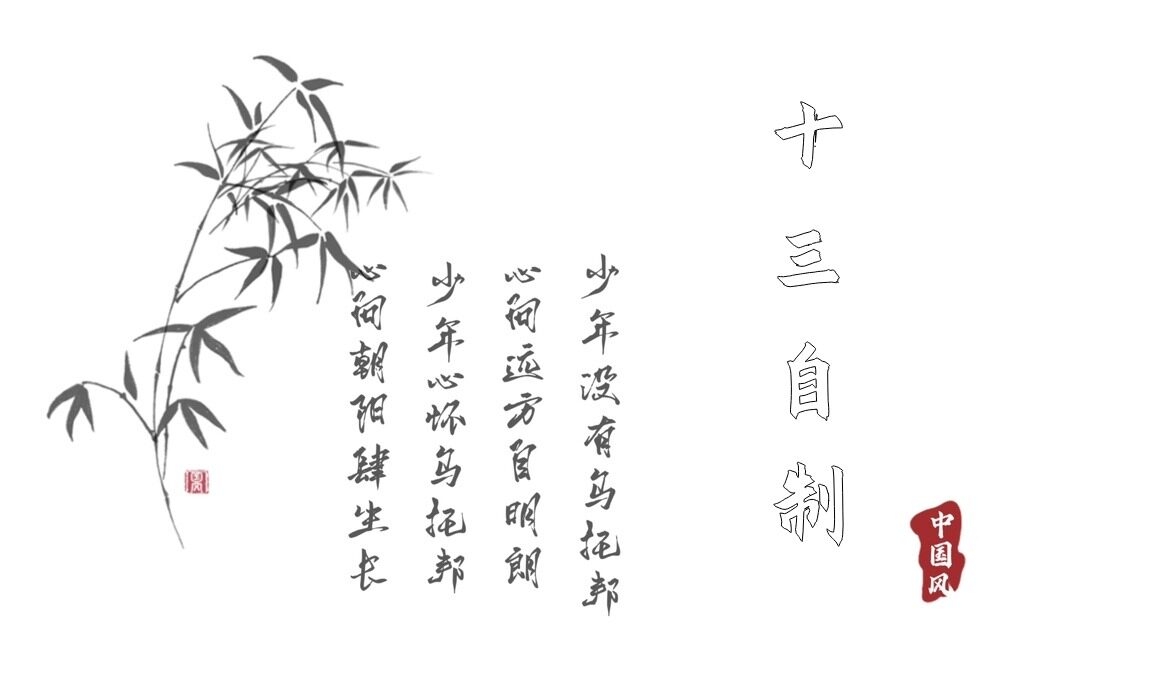 十三自制
中国风
少年没有乌托邦
心向远方自明朗
少年心怀乌托邦
心向朝阳肆生长